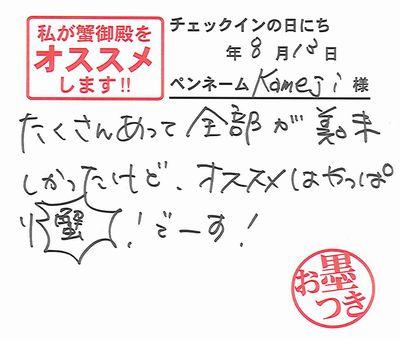 私が蟹御殿を
オススメ
します!!
チェックインの日にち
年 8 月 13 日
ペンネーム Kameji 様
たくさんあって全部が美味
しかったけど、オススメはやっぱ
り蟹!でーす!
お墨つき